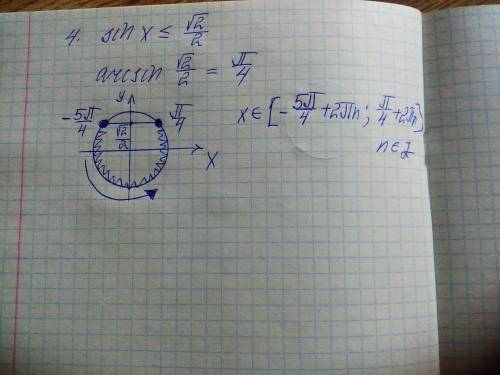 4. sin x ≤ √2/2
arcsin √2/2 = π/4
y
-5π/4 π/4
√2/2
X
x∈[-5π/4+2πn; π/4+2πn]
n∈Z